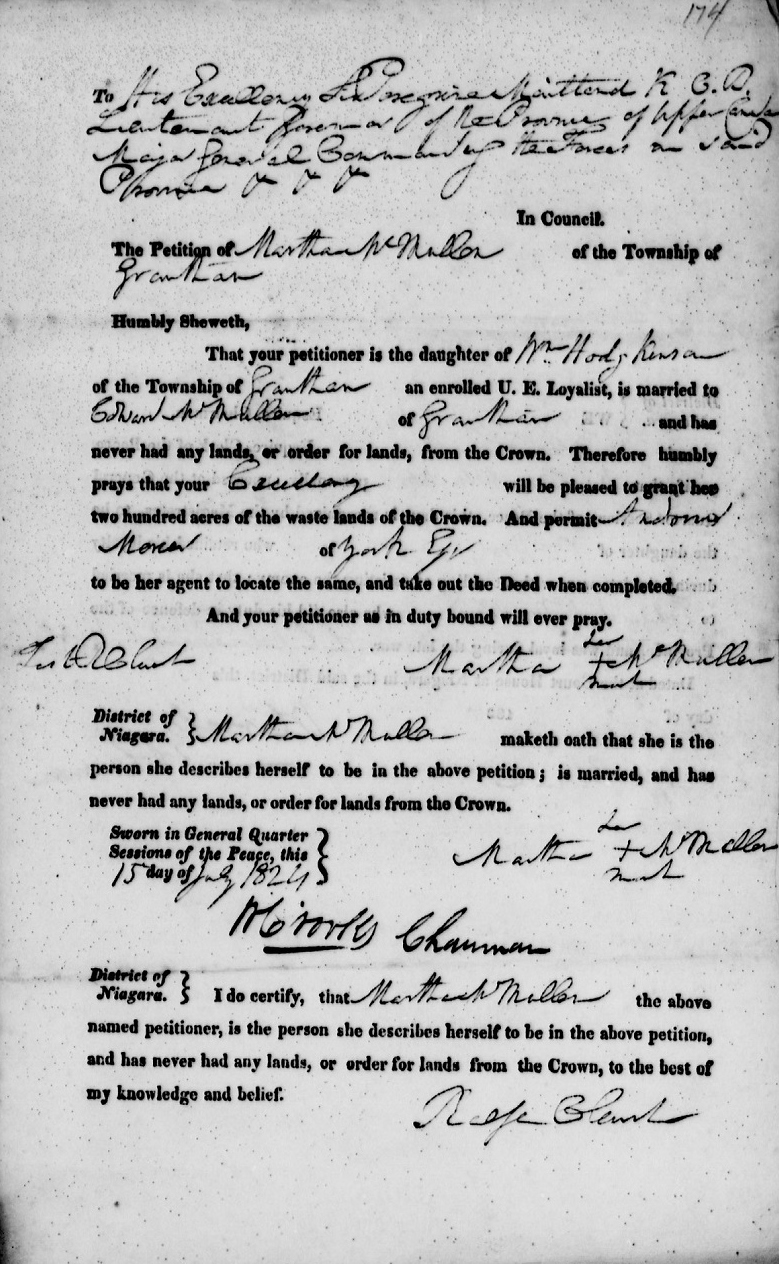 174
To His Excellency Sir Peregrine Maitland K C B.
Lieutenant Governor of the Province of Upper Canada
Major General Commanding the Forces in said
Province & & &
In Council.
The Petition of Martha Mc Mullen of the Township of
Grantham
Humbly Sheweth,
That your petitioner is the daughter of Wm Hodgkinson
of the Township of Grantham an enrolled U. E. Loyalist, is married to
Edward Mc Mullen of Grantham and has
never had any lands, or order for lands, from the Crown. Therefore humbly
prays that your Excellency will be pleased to grant her
two hundred acres of the waste lands of the Crown. And permit Andrew
Mercer of York Esqr
to be her agent to locate the same, and take out the Deed when completed.
And your petitioner as in duty bound will ever pray.
her
Clench Martha + Mc Mullen
mark
District of
Niagara. } Martha Mc Mullen maketh oath that she is the
person she describes herself to be in the above petition; is married, and has
never had any lands, or order for lands from the Crown.
Sworn in General Quarter
Sessions of the Peace, this
15 day of July 1824
her
Martha + Mc Mullen
mark
Chairman
District of
Niagara. } I do certify, that Martha Mc Mullen the above
named petitioner, is the person she describes herself to be in the above petition,
and has never had any lands, or order for lands from the Crown, to the best of
my knowledge and belief.
Ralfe Clench